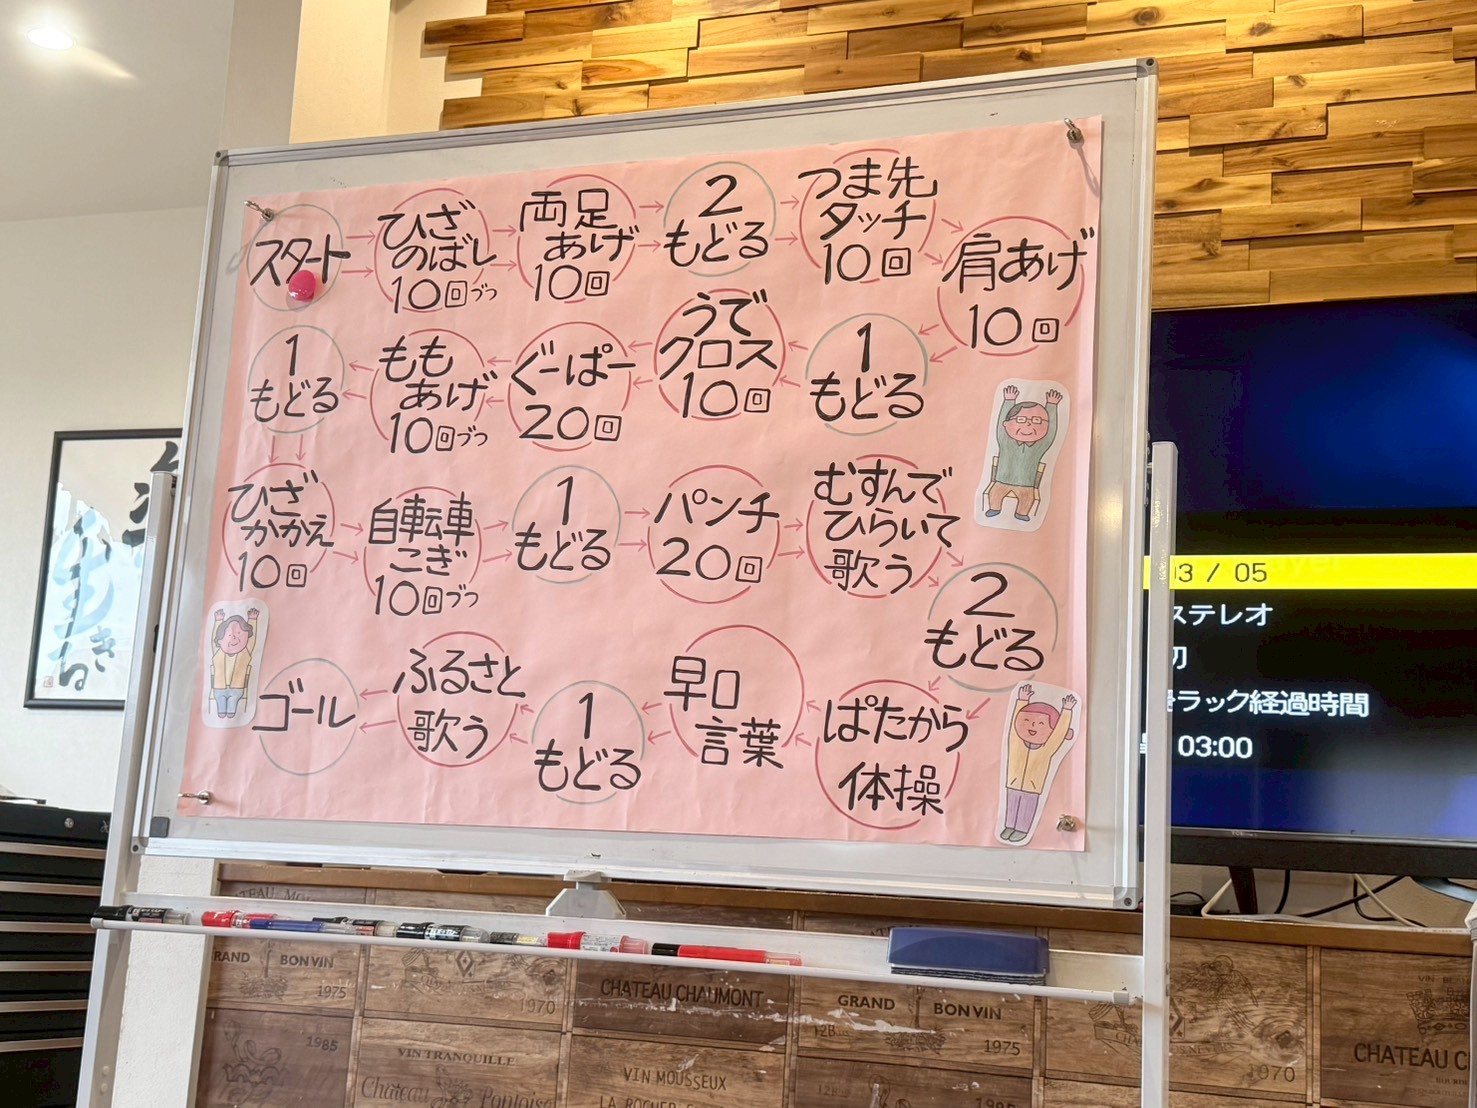 スタート
ひざ
のばし
10回づつ
両足
あげ
10回
2
もどる
つま先
タッチ
10回
肩あげ
10回
1
もどる
うで
クロス
10回
ぐーぱー
20回
もも
あげ
10回づつ
1
もどる
ひざ
かかえ
10回
自転車
こぎ
10回づつ
1
もどる
パンチ
20回
むすんで
ひらいて
歌う
2
もどる
ぱたから
体操
早口
言葉
1
もどる
ふるさと
歌う
ゴール
03 / 05
ステレオ
切
ラック経過時間
03:00
GRAND BONVIN
1975
1970
CHATEAU CHAUMONT
GRAND BONVIN
1975
1985
VIN TRANQUILLE
Chateau Pontoise
VIN MOUSSEUX
1970
CHATEAU C
1985